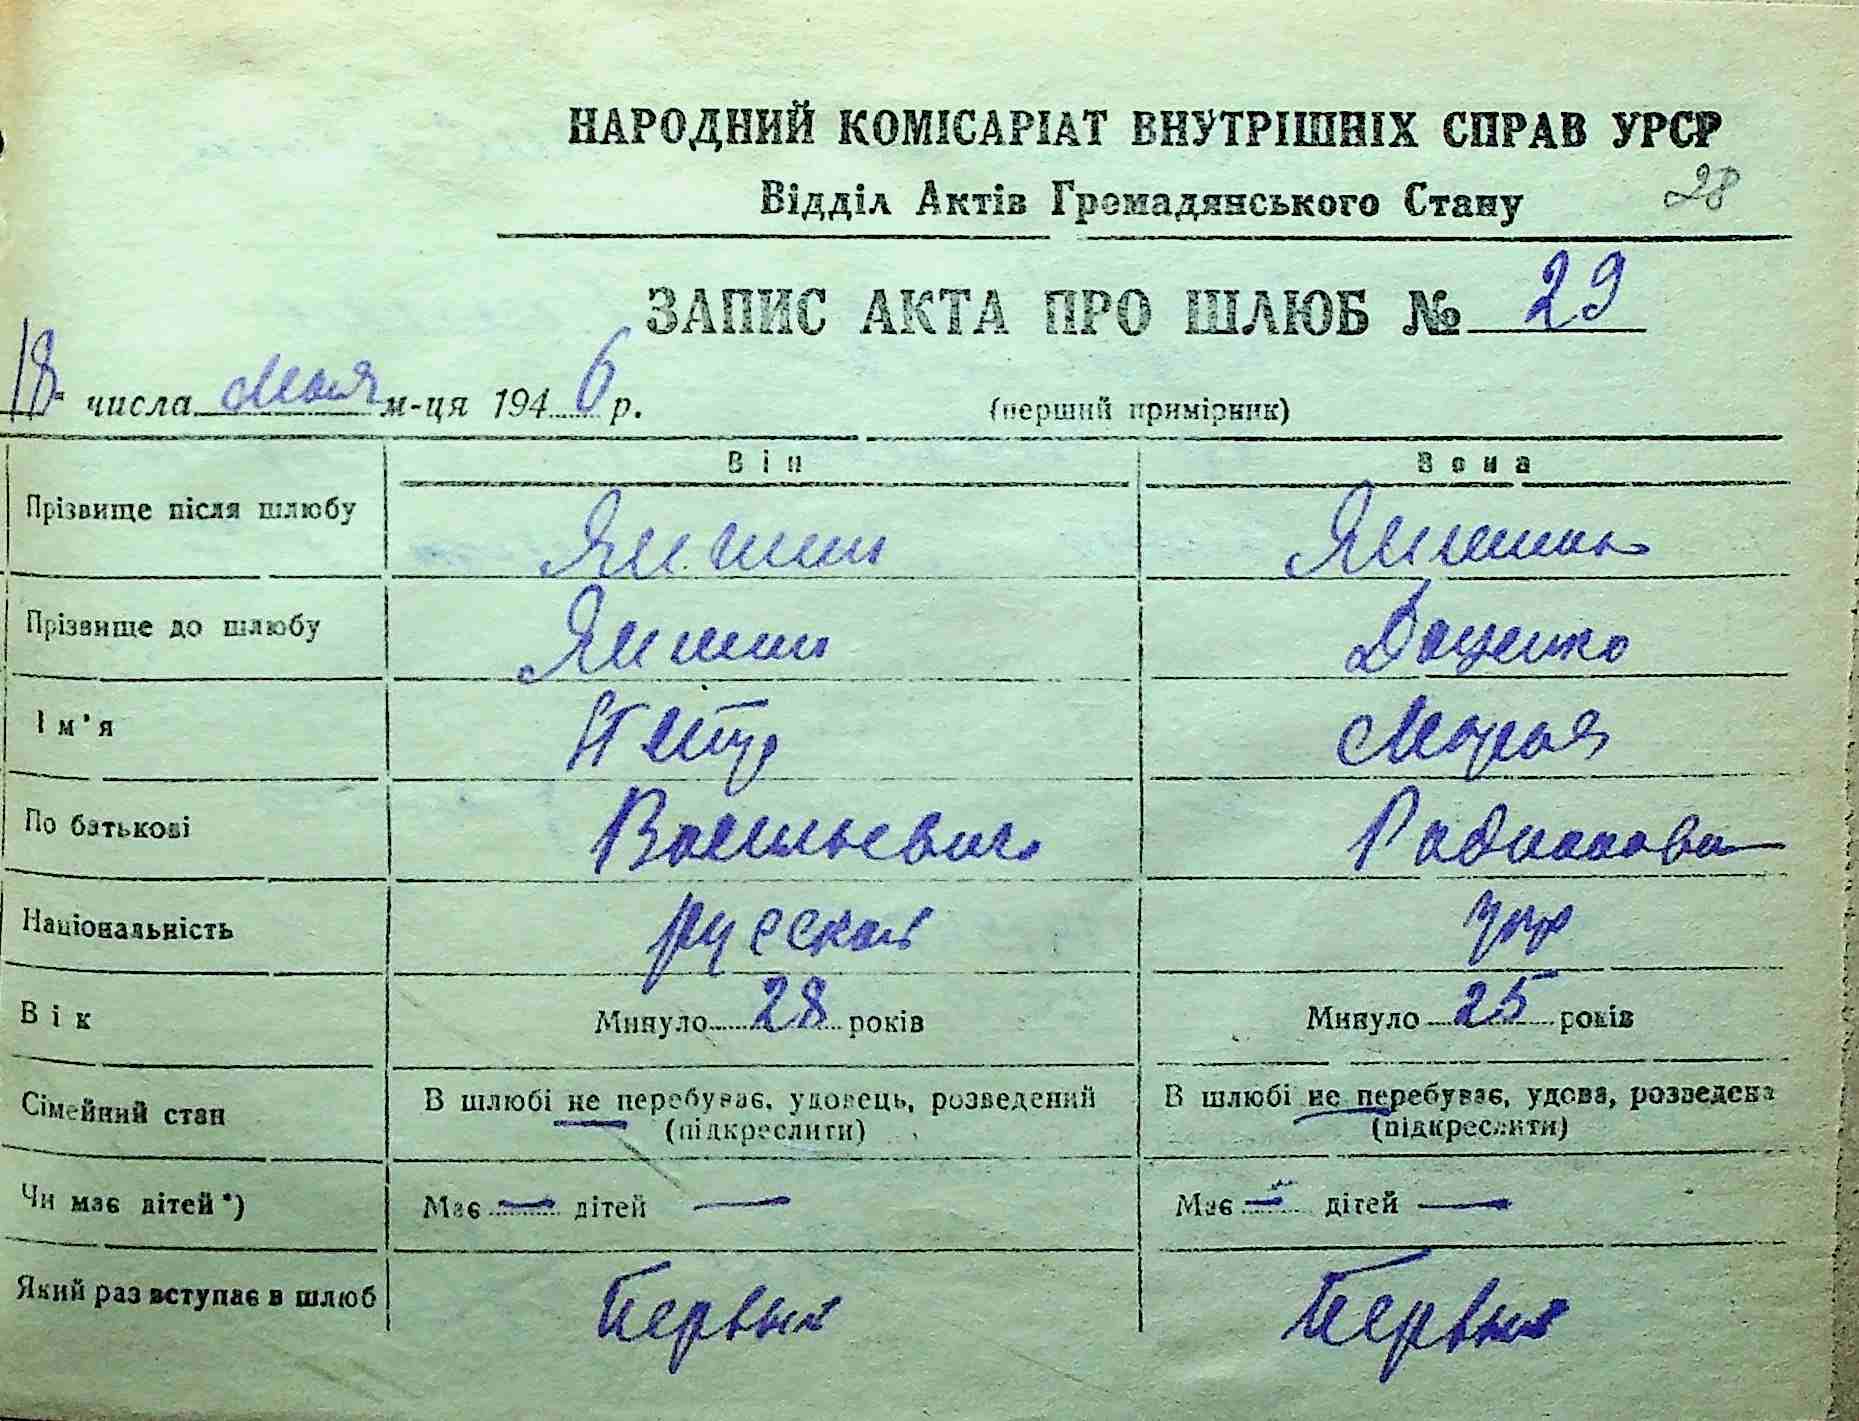 НАРОДНИЙ КОМІСАРІАТ ВНУТРІШНІХ СПРАВ УРСР
Відділ Актів Громадянського Стану 28
ЗАПИС АКТА ПРО ШЛЮБ № 29
18 числа мая м-ця 1946 р. (перший примірник)
Він Вона
Прізвище після шлюбу
Прізвище до шлюбу Доценко
Ім'я Петр Мария
По батькові Васильевич Родионовна
Національність русский укр
Вік Минуло 28 років Минуло 25 років
Сімейний стан В шлюбі не перебуває, удовець, розведений В шлюбі не перебуває, удова, розведена
(підкреслити) (підкреслити)
Чи має дітей*) Має — дітей — Має — дітей —
Який раз вступає в шлюб Первый Первый